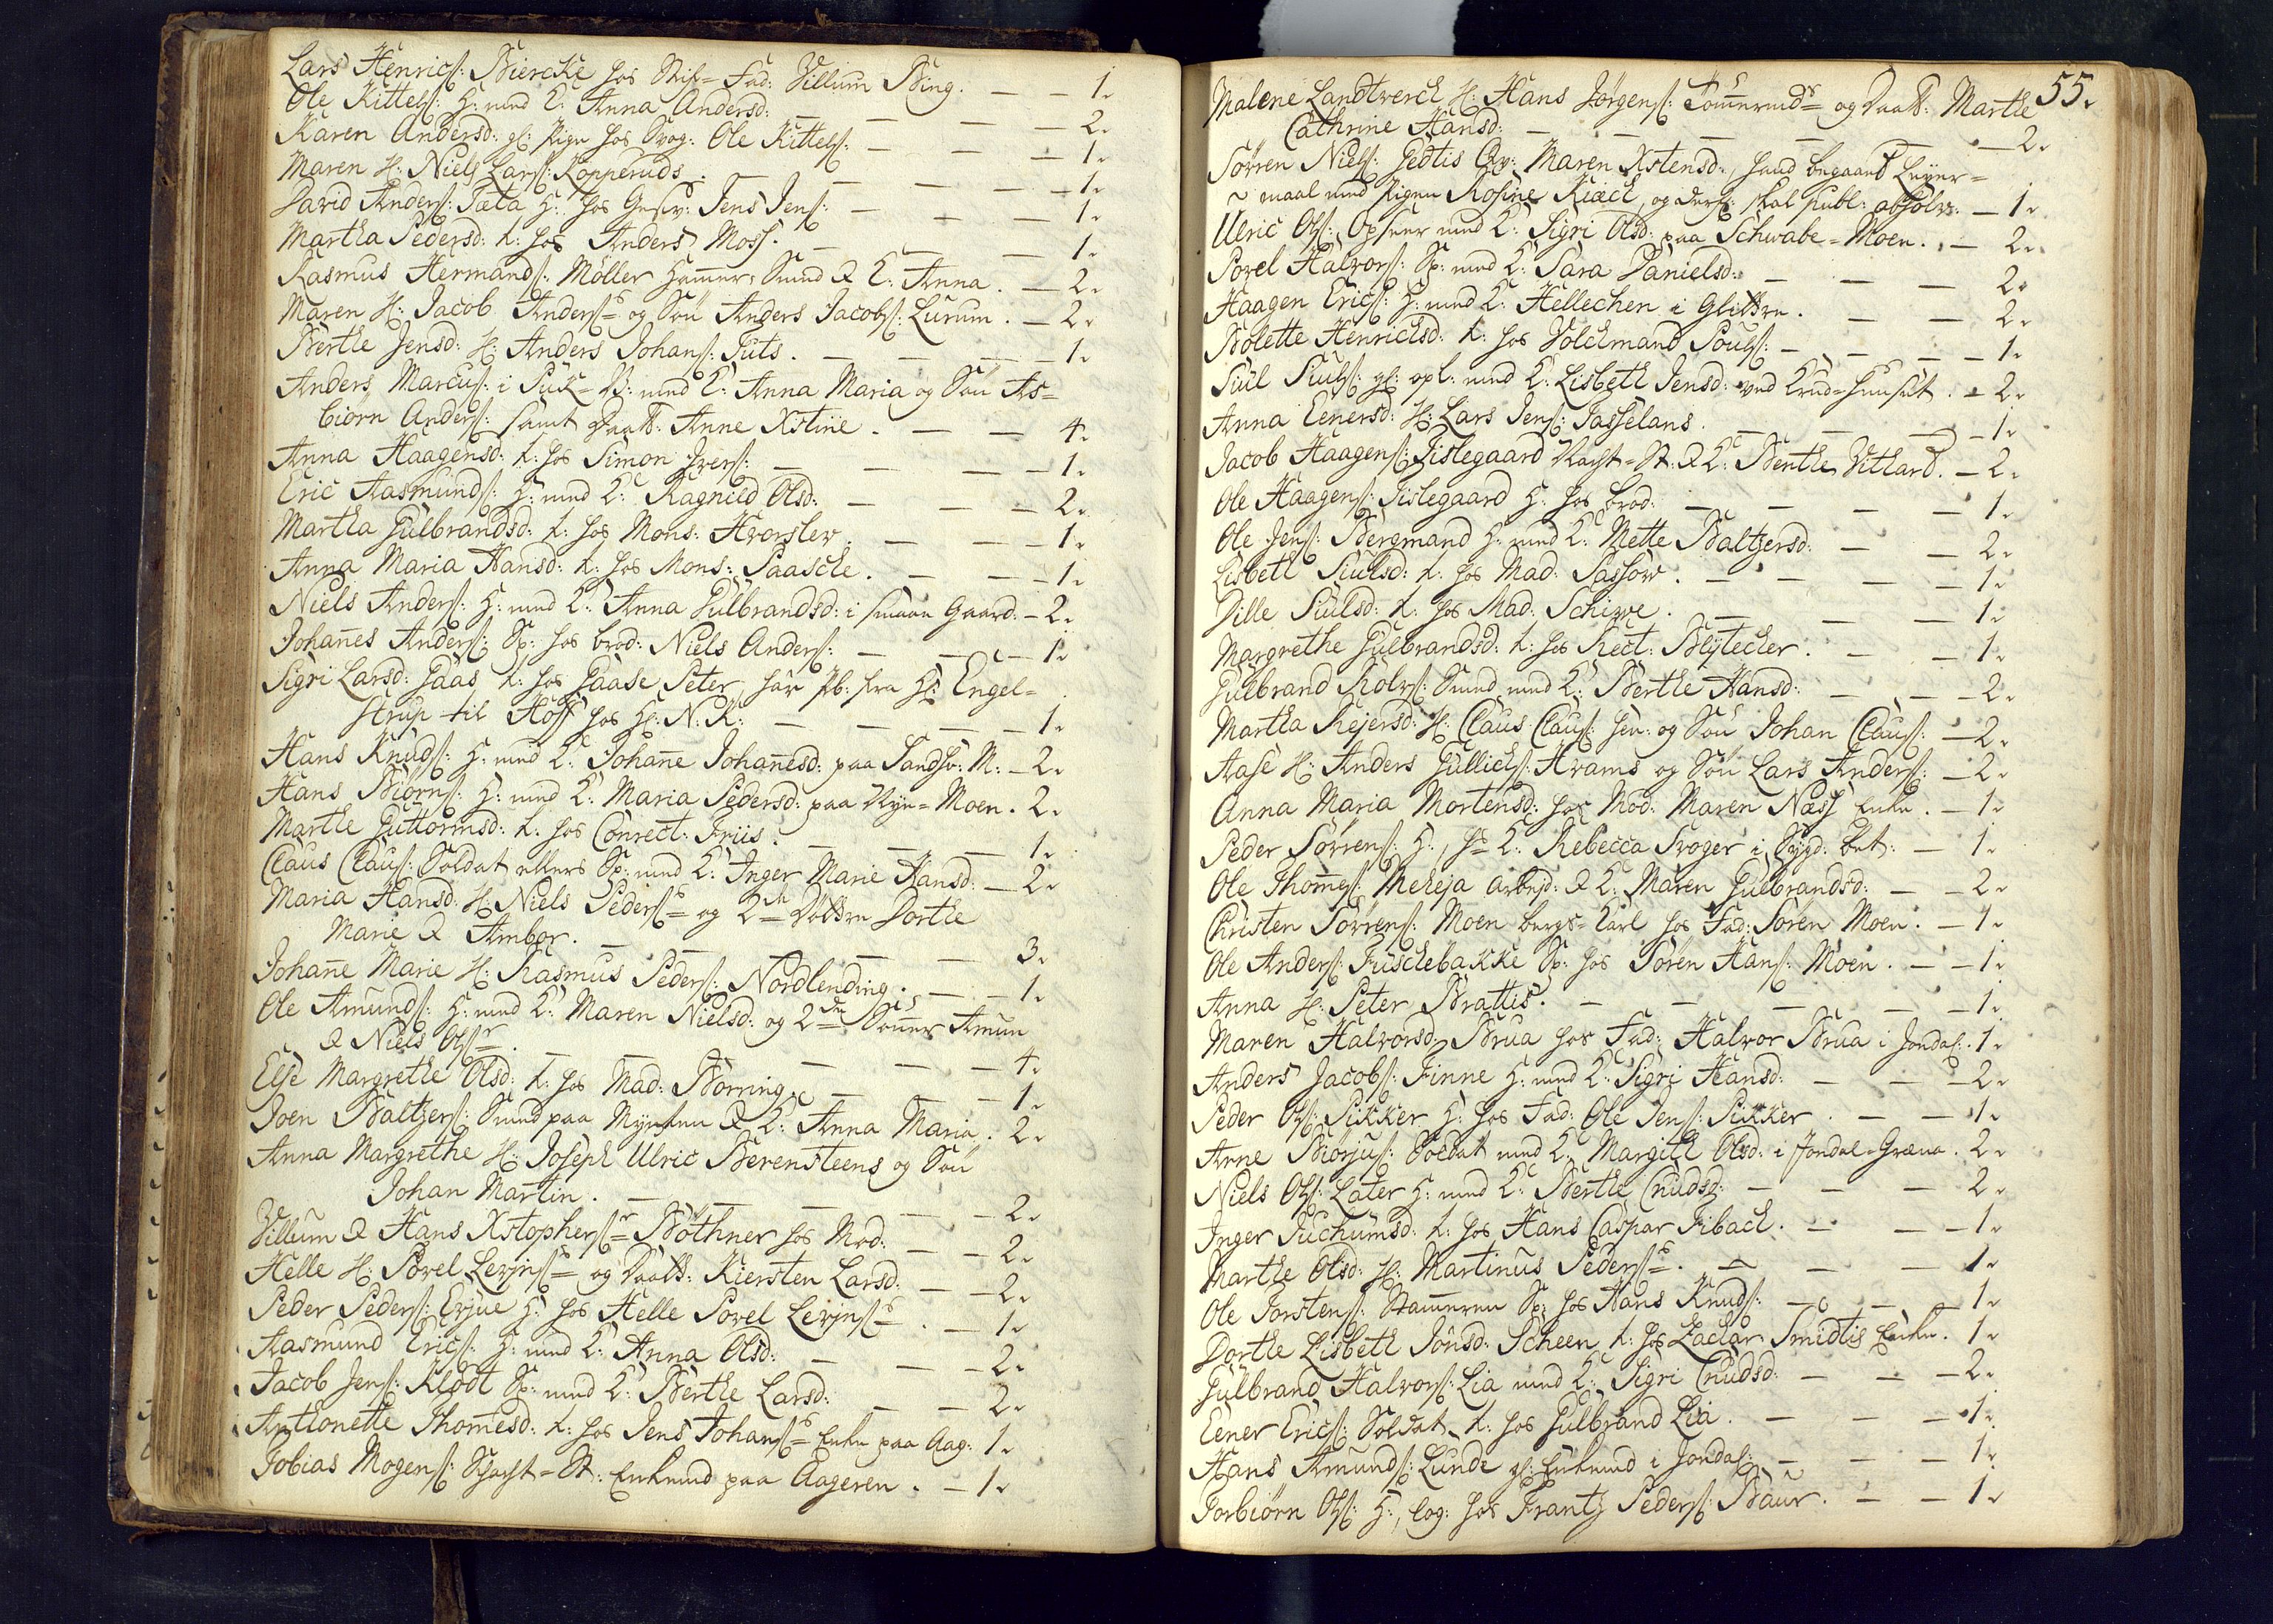 Lars Henrics: Biercke hos Stif-Fad: Villum Bing. — — 1.
Ole Kittels: H: med K: Anna Andersd: — — — 2.
Karen Andersd: gl: Pige hos Svog: Ole Kittels: — — — 1.
Maren H: Niels Lars: Kopperuds. — — — 1.
David Anders: Tæta H: hos Gesw: Jens Jens: — — — 1.
Martha Pedersd: t: hos Anders Moss. — — — 1.
Rasmus Hermands: Möller Hammer-Smed & K: Anna. — 2.
Maren H: Jacob Anders: og Sön Anders Jacobs: Lurum. — 2.
Berthe Jensd: H: Anders Johans: Juts. — — — 1.
Anders Marcus: i Puk-V: med K: Anna Maria og Sön As-
biörn Anders: samt Daatt: Anne Xstine. — — 4.
Anna Haagensd: t: hos Simon Ivers: — — — 1.
Eric Aasmunds: H: med K: Ragnild Olsd: — — — 2.
Martha Gulbrandsd: t: hos Mons: Hvorslev. — — — 1.
Anna Maria Hansd: t: hos Mons: Paasche. — — — 1.
Niels Anders: H: med K: Anna Gulbrandsd: i smaae Gaard: — 2.
Johañes Anders: Sp: hos brod: Niels Anders: — — — 1.
Sigri Larsd: Gaas t: hos Gaase Peter, har Pb: fra Hr: Engel-
strup til Höff hos Hr: N. K: — — — 1.
Hans Knuds: H: med K: Johañe Johañesd: paa Sandsv: M: — 2.
Hans Biörns: H: med K: Maria Pedersd: paa Nye-Moen. 2.
Marthe Guttormsd: t: hos Conrect: Friis. — — — 1.
Claus Claus: Soldat ellers Sp: med K: Inger Marie Hansd: — 2.
Maria Hansd: H: Niels Peders: og 2de Döttre Dorthe
Marie & Ambor. — — — 3.
Johañe Marie H: Rasmus Peders: Nordlending. — — 1.
Ole Amunds: H: med K: Maren Nielsd: og 2de Söñer Amun
& Niels Ols: — — — 4.
Else Margrethe Olsd: t: hos Mad: Börring. — — — 1.
Joen Baltzers: Smed paa Mynten & K: Anna Maria. 2.
Anna Margrethe H: Joseph Ulric Berensteens og Sön
Johan Martin. — — — 2.
Villum & Hans Xstophers: Böthner hos Mod: — — 2.
Helle H: Povel Levjns: og Daatt: Kiersten Larsd: — — 2.
Peder Peders: Evjue H: hos Helle Povel Levjns: — 1.
Aasmund Erics: H: med K: Anna Olsd: — — — 2.
Jacob Jens: Klödt Sp: med K: Berthe Larsd: — — 2.
Anthonette Thomesd: t: hos Jens Johans: Enke paa Aag: 1.
Tobias Mogens: Schacht-St: Enkemd paa Aageren. — 1.
55.
Malene Landtverch H: Hans Jörgens: Tomeruds og Daatt: Marthe
Cathrine Hansd: — — — 2.
Sörren Niels: Gedtis Qv: Maren Xstensd:, hand begaaet Leyer-
maal med Pigen Rosine Kiæck, og derfor skal publ: absolv: — 1.
Ulric Ols: Opseer med K: Sigri Olsd: paa Schwabe-Moen. — 2.
Povel Halvors: Sp: med K: Sara Danielsd: — — 2.
Haagen Erics: H: med K: Hellechen i Glittre. — — 2.
Bolette Henrichsd: t: hos Volchmand Pouls: — — — 1.
Juul Juuls: gl: opl: med K: Lisbeth Jensd: ved Krud-Huuset. — 2.
Anna Eenersd: H: Lars Jens: Jasselans. — — — 1.
Jacob Haagens: Tislegaard Nacht-St: & K: Benthe Vithard. — 2.
Ole Haagens: Tislegaard H: hos brod: — — — 1.
Ole Jens: Bergmand H: med K: Mette Baltzersd: — — 2.
Lisbeth Juulsd: t: hos Mad: Passow. — — — 1.
Dille Juulsd: t: hos Mad: Schiwe. — — — 1.
Margrethe Gulbrandsd: t: hos Rect: Blytecker. — — 1.
Gulbrand Rolvs: Smed med K: Berthe Hansd: — — 2.
Martha Rejersd: H: Claus Claus: sen: og Sön Johan Claus: — 2.
Aase H: Anders Gullichs: Hrams og Sön Lars Anders: — 2.
Anna Maria Mortensd: hos Mod: Maren Næss Enke. — 1.
Peder Sörrens: H:, hs K: Rebecca Troger i Sygd: bet: — 1.
Ole Thomes: Meheja arbejd: & K: Maren Gulbrandsd: — — 2.
Christen Sörrens: Moen bergs-Karl hos Fad: Sören Moen: — 1.
Ole Anders: Fuschebakke Sp: hos Sören Hans: Moen. — — 1.
Anna H: Peter Brattis. — — — 1.
Maren Halvorsd: Brua hos Fad: Halvor Brua i Jondal: 1.
Anders Jacobs: Finne H: med K: Sigri Hansd: — — 2.
Peder Ols: Pikker H: hos Fad: Ole Jens: Pikker. — — 1.
Arne Biörjus: Soldat med K: Margith Olsd: i Jondal-Græna. 2.
Niels Ols: Later H: med K: Berthe Cnudsd: — — 2.
Inger Juchumsd: t: hos Hans Caspar Fiback. — — 1.
Marthe Olsd: H: Martinus Peders: — — — 1.
Ole Torstens: Stammeren Sp: hos Hans Knuds: — — 1.
Dorthe Lisbeth Jönsd: Scheen t: hos Zachar Smidtis Enke. 1.
Gulbrand Halvors: Lia med K: Sigri Cnudsd: — — 2.
Eener Erics: Soldat t: hos Gulbrand Lia. — — — 1.
Hans Amunds: Lunde gl: Enkemd i Jondal: — — — 1.
Torbiörn Ols: H:, log: hos Frantz Peders: Baur. — — 1.